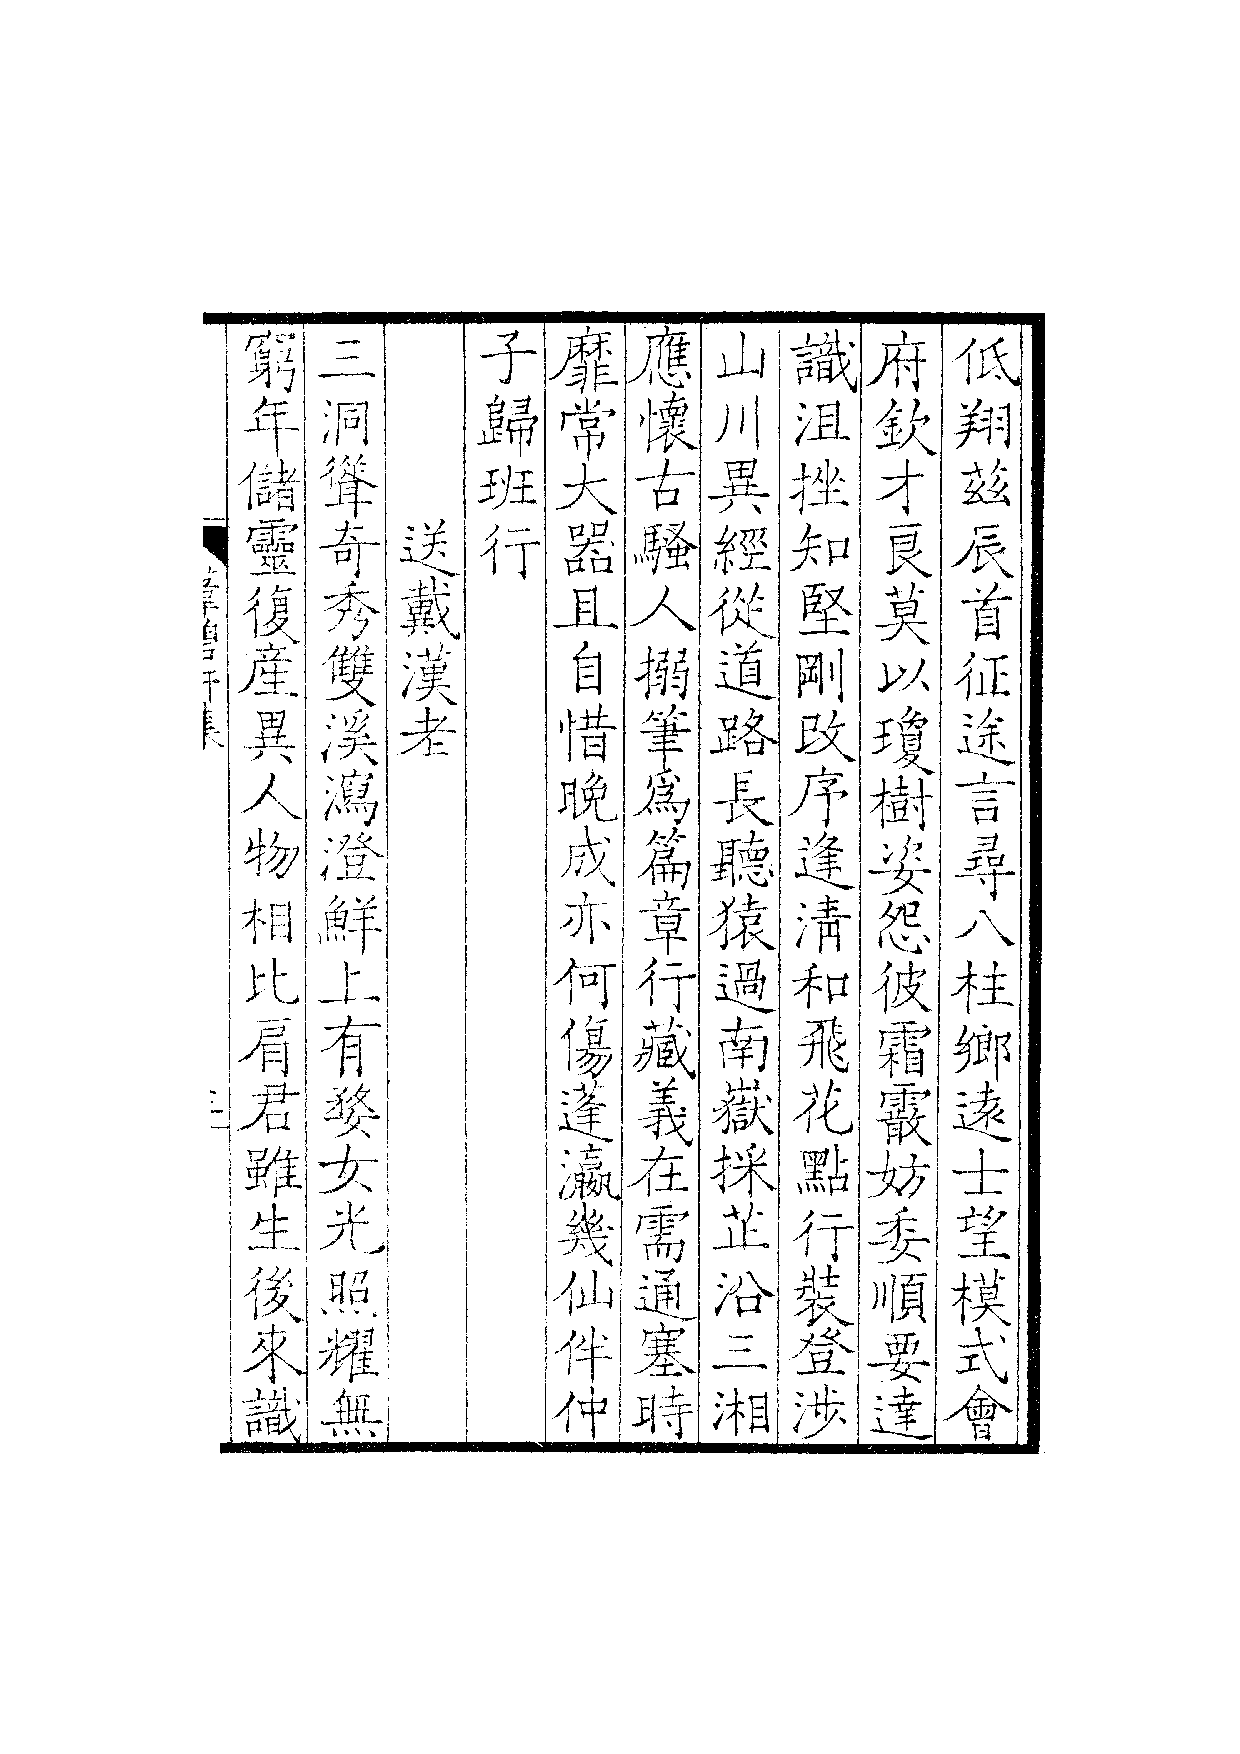 低翔茲辰首征途言尋八柱鄉遠士望模式會
府欽才良莫以瓊樹姿怨彼霜霰妨委順要達
識沮挫知堅剛改序逢清和飛花點行裝登涉
山川異經從道路長聽猿過南嶽採芷沿三湘
應懷古騷人搦筆為篇章行藏義在需通塞時
靡常大器且自惜晚成亦何傷蓬瀛幾仙伴仲
子歸班行
送戴漢老
三洞聳奇秀雙溪瀉澄鮮上有婺女光照耀無
窮年儲靈復產異人物相比肩君雖生後來識